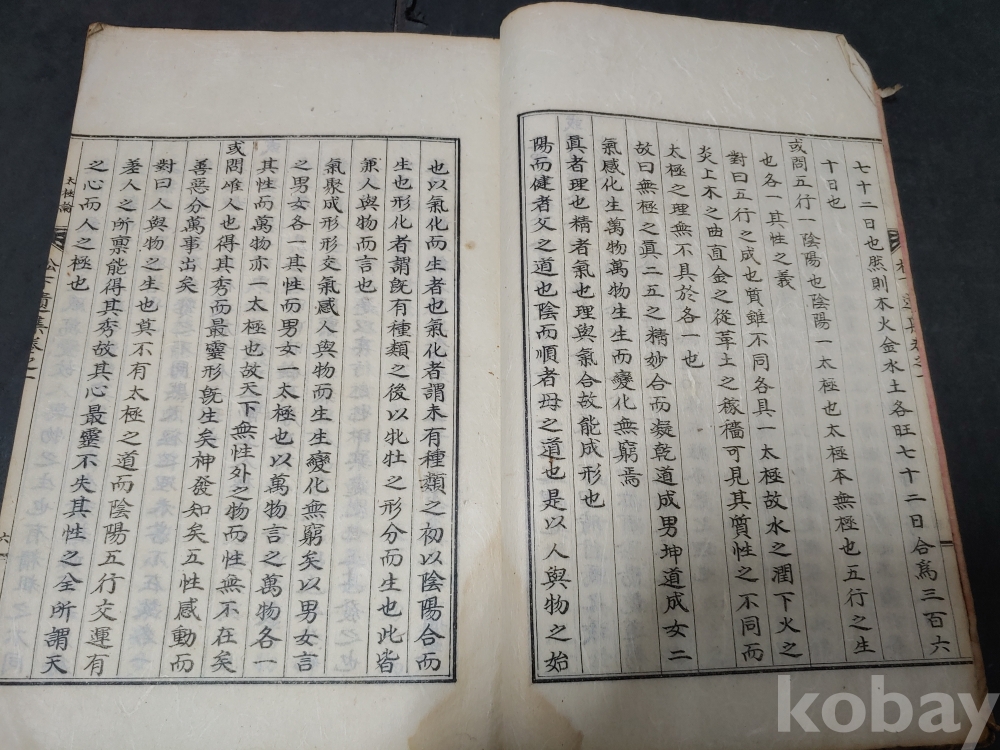 七十二日也然則木火金水土各旺七十二日合爲三百六
十日也
或問五行一陰陽也陰陽一太極也太極本無極也五行之生
也各一其性之義
對曰五行之成也質雖不同各具一太極故水之潤下火之
炎上木之曲直金之從革土之稼穡可見其質性之不同而
太極之理無不具於各一也
故曰無極之眞二五之精妙合而凝乾道成男坤道成女二
氣感化生萬物萬物生生而變化無窮焉
眞者理也精者氣也理與氣合故能成形也
陽而健者父之道也陰而順者母之道也是以人與物之始
也以氣化而生者也氣化者謂未有種類之初以陰陽合而
生也形化者謂旣有種類之後以牝牡之形分而生也此皆
兼人與物而言也
氣聚成形形交氣感人與物而生生變化無窮矣以男女言
之男女各一其性而男女一太極也以萬物言之萬物各一
其性而萬物亦一太極也故天下無性外之物而性無不在矣
或問唯人也得其秀而最靈形旣生矣神發知矣五性感動而
善惡分萬事出矣
對曰人與物之生也莫不有太極之道而陰陽五行交運有
差人之所禀能得其秀故其心最靈不失其性之全所謂天
之心而人之極也
太極論
松下遺集卷之一
六
kobay